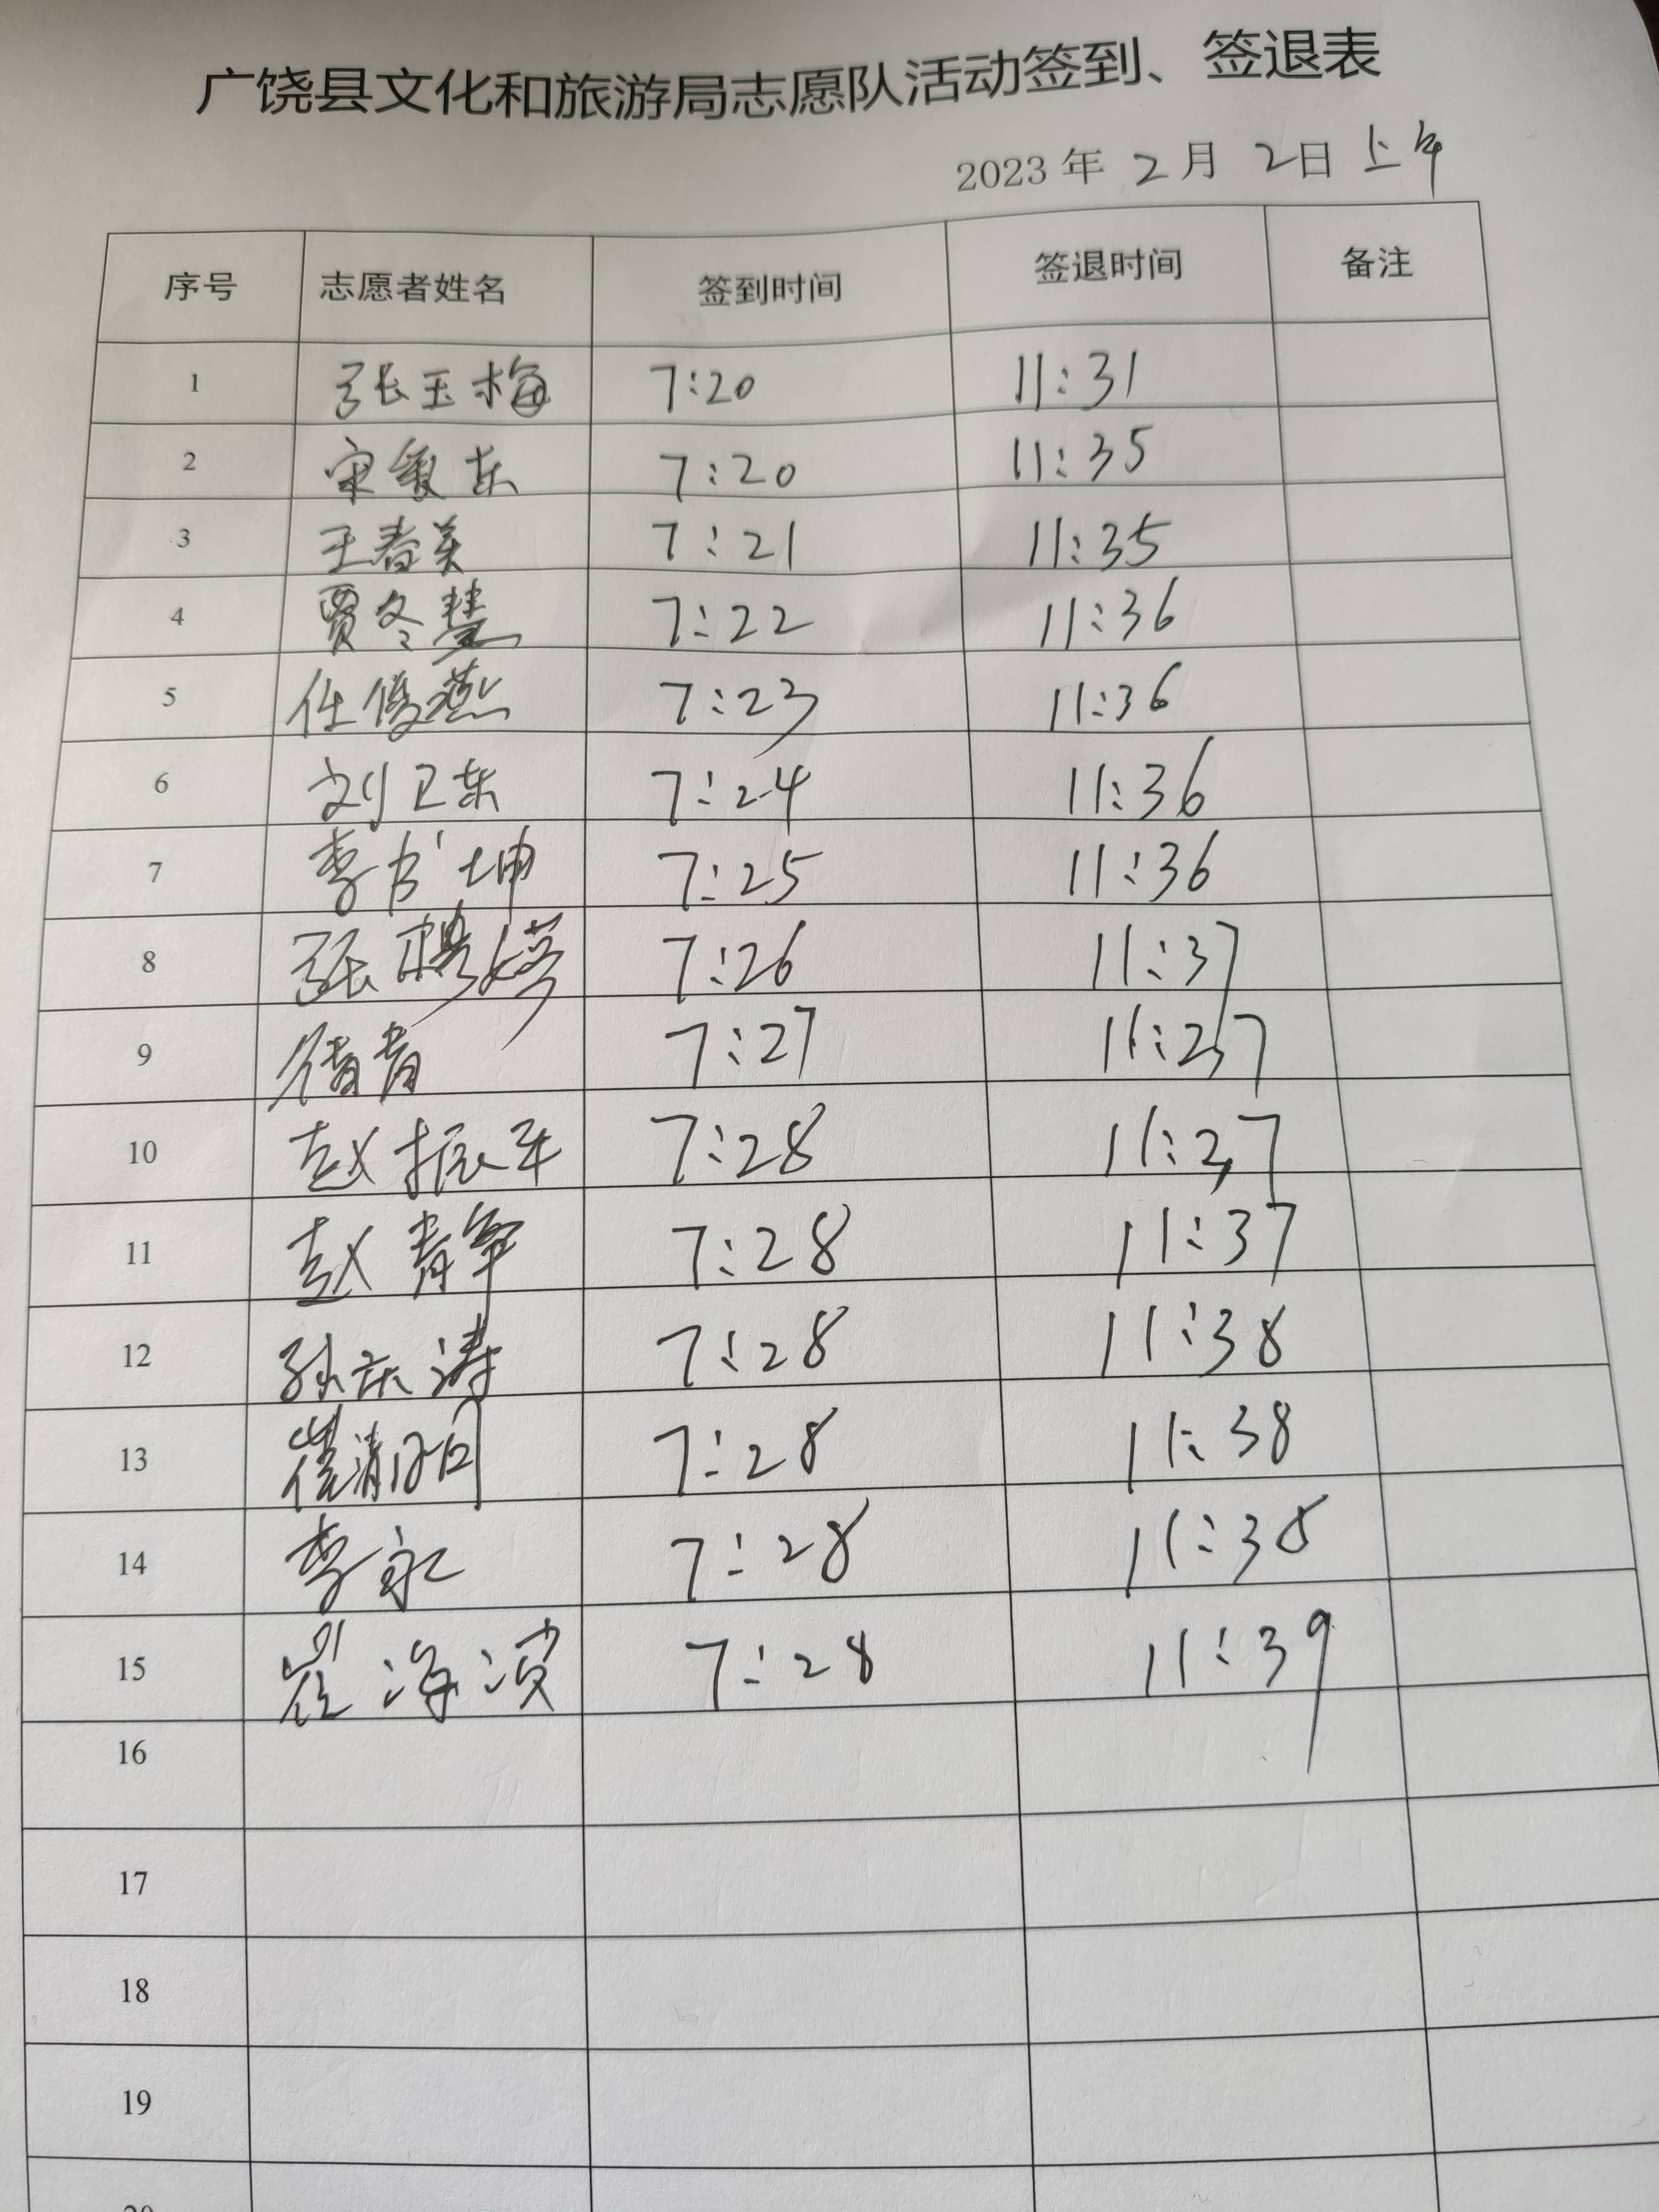 广饶县文化和旅游局志愿队活动签到、签退表
2023 年 2 月 2 日 上午
序号 志愿者姓名 签到时间 签退时间 备注
1 张玉梅 7:20 11:31
2 宋爱东 7:20 11:35
3 王春美 7:21 11:35
4 贾冬慧 7:22 11:36
5 任俊燕 7:23 11:36
6 刘卫东 7:24 11:36
7 李书坤 7:25 11:36
8 张 婷 7:26 11:37
9 青 7:27 11:37
10 赵振军 7:28 11:37
11 赵静 7:28 11:37
12 孙庆涛 7:28 11:38
13 崔清 7:28 11:38
14 李永 7:28 11:38
15 崔海波 7:28 11:39
16
17
18
19
20